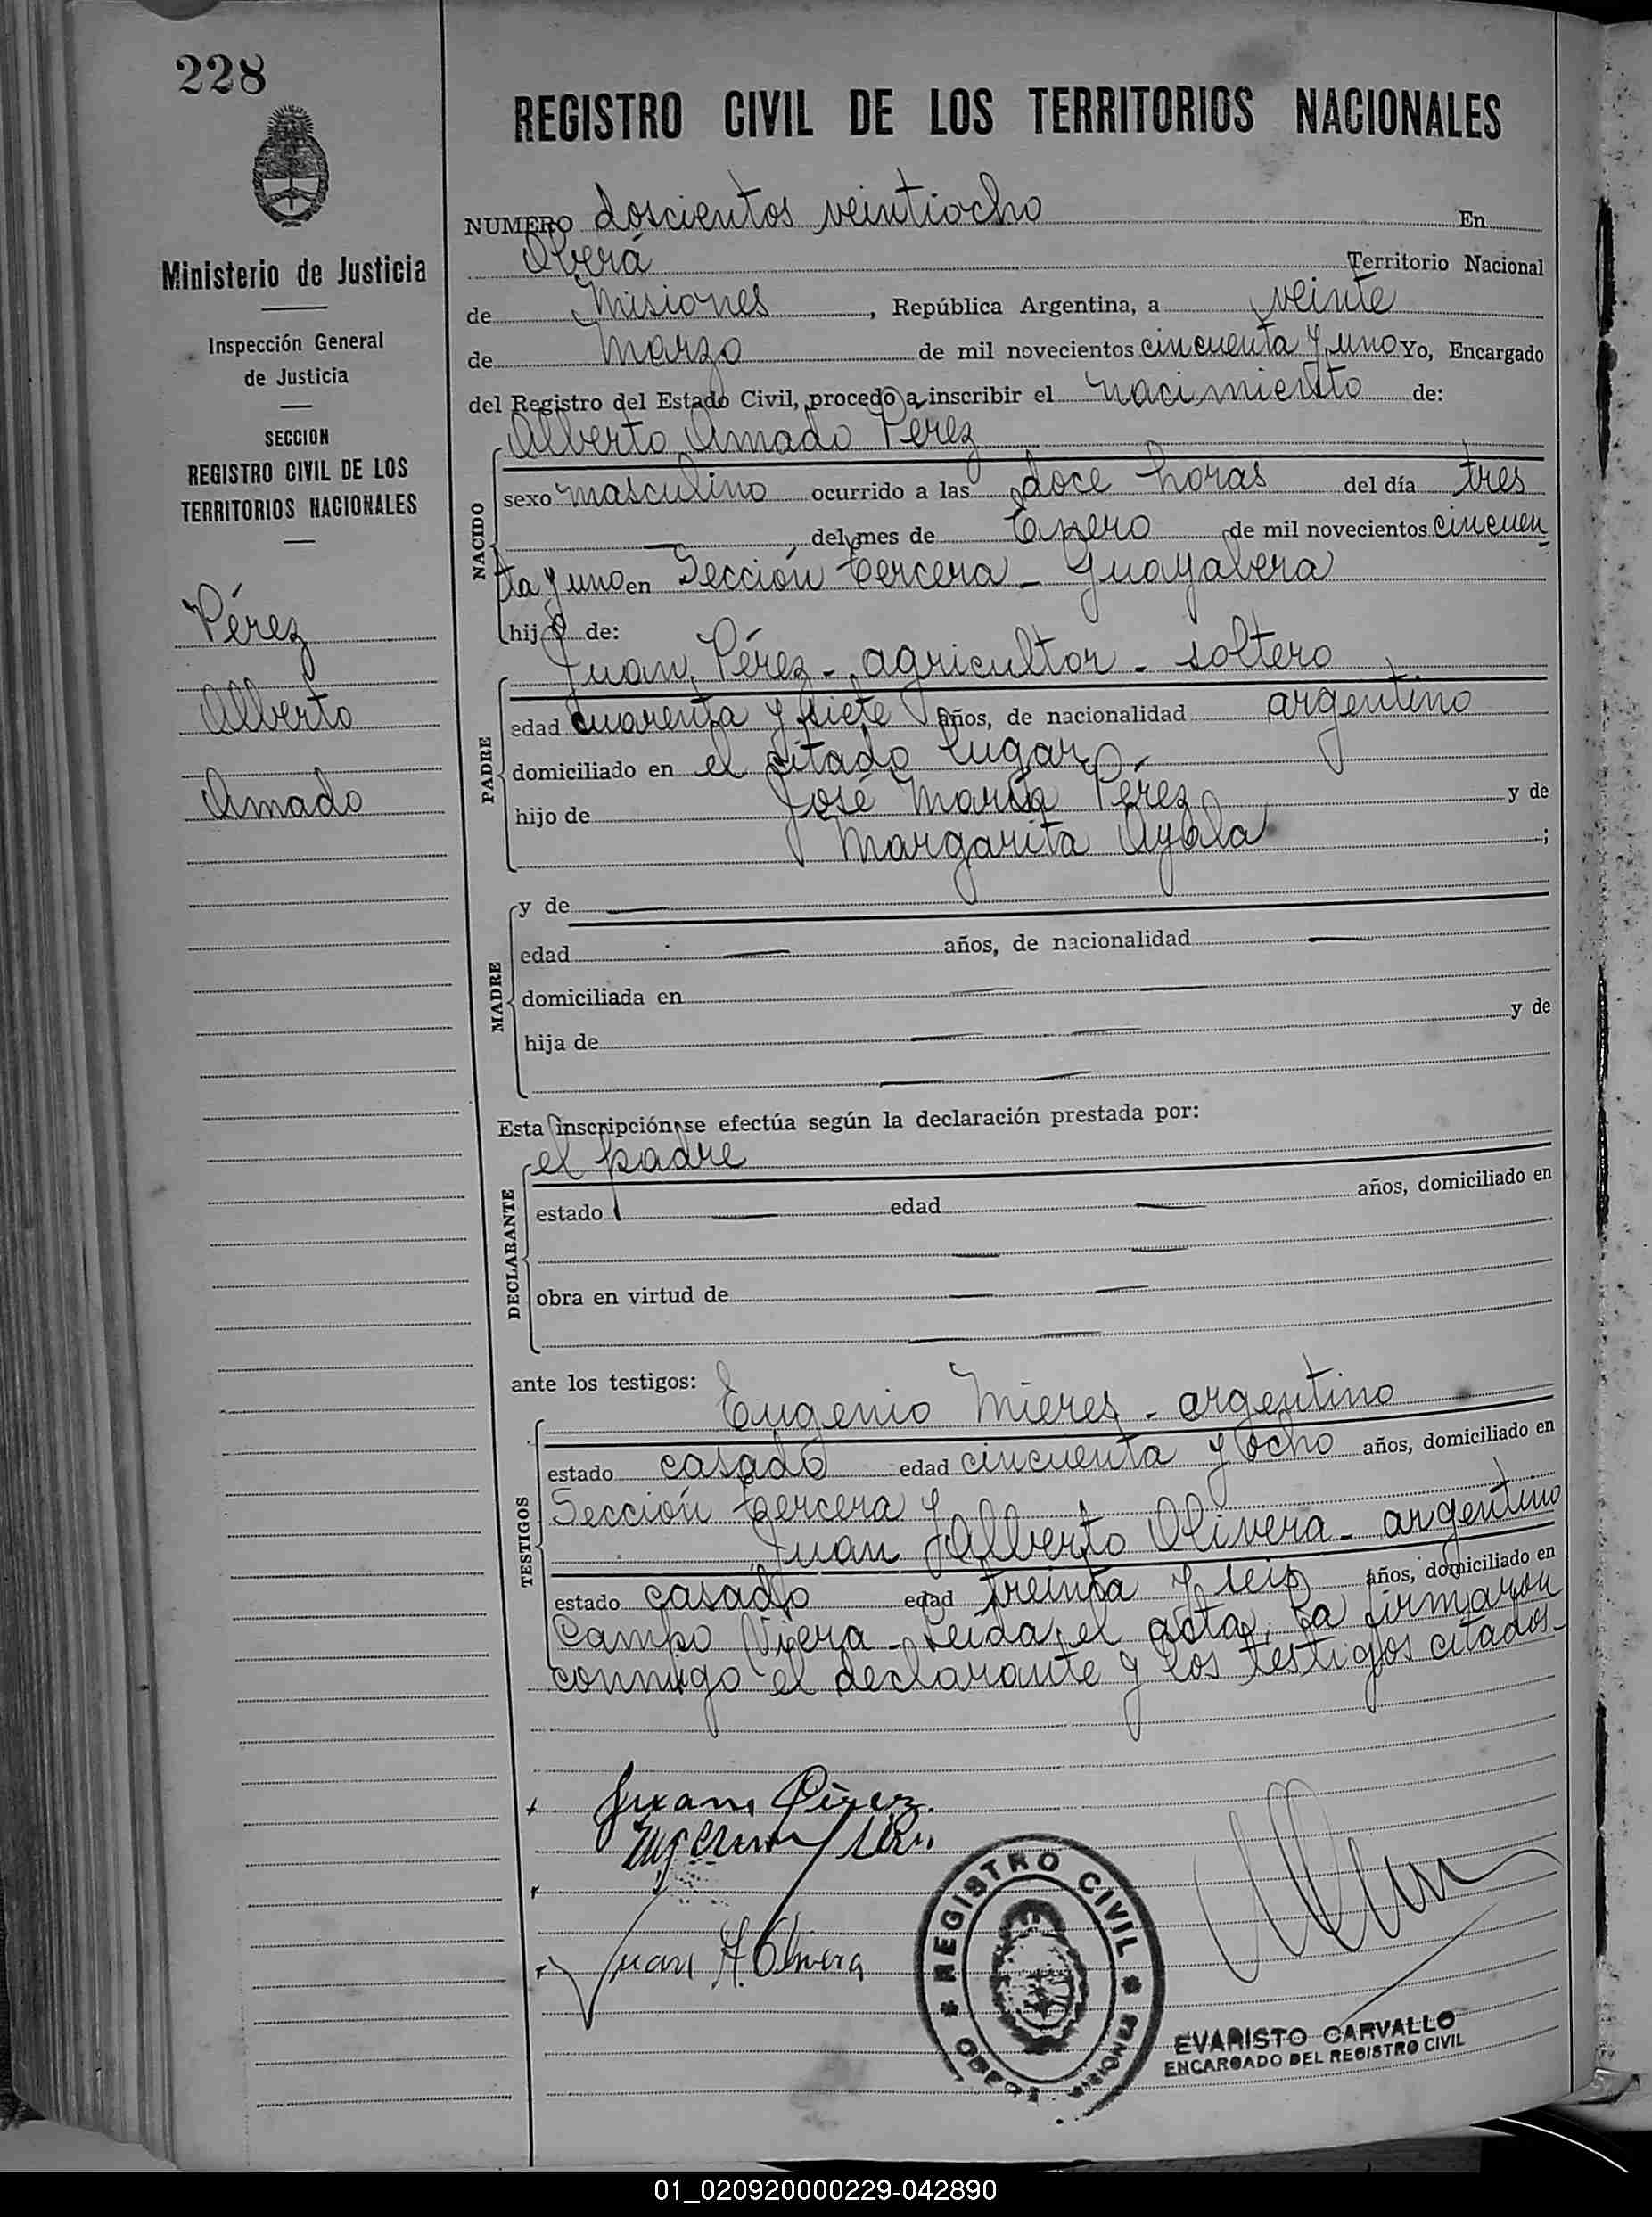 228
REGISTRO CIVIL DE LOS TERRITORIOS NACIONALES
Ministerio de Justicia
Inspección General
de Justicia
SECCION
REGISTRO CIVIL DE LOS
TERRITORIOS NACIONALES
Pérez
Alberto
Amado
NUMERO doscientos veintiocho En
Oberá Territorio Nacional
de Misiones, República Argentina, a veinte
de Marzo de mil novecientos cincuenta y uno Yo, Encargado
del Registro del Estado Civil, procedo a inscribir el nacimiento de:
Alberto Amado Pérez
NACIDO
sexo masculino ocurrido a las doce horas del día tres
— del mes de Enero de mil novecientos cincuen
ta y uno en Sección tercera - Guayabera
hijo de:
Juan Pérez - agricultor - soltero
PADRE
edad cuarenta y siete años, de nacionalidad argentino
domiciliado en el citado lugar
hijo de José María Pérez y de
Margarita Ayala ;
MADRE
y de —
edad — años, de nacionalidad —
domiciliada en — —
hija de — — y de
— —
Esta inscripción se efectúa según la declaración prestada por:
el padre
DECLARANTE
estado — edad — años, domiciliado en
— —
obra en virtud de — —
— —
ante los testigos:
Eugenio Mieres - argentino
TESTIGOS
estado casado edad cincuenta y ocho años, domiciliado en
Sección tercera y
Juan Alberto Olivera - argentino
estado casado edad treinta y seis años, domiciliado en
Campo Viera - Leida el acta, la firmaron
conmigo el declarante y los testigos citados.-
Juan Pérez.
Juan A. Olivera
REGISTRO CIVIL
OBERA
EVARISTO CARVALLO
ENCARGADO DEL REGISTRO CIVIL
01_020920000229-042890